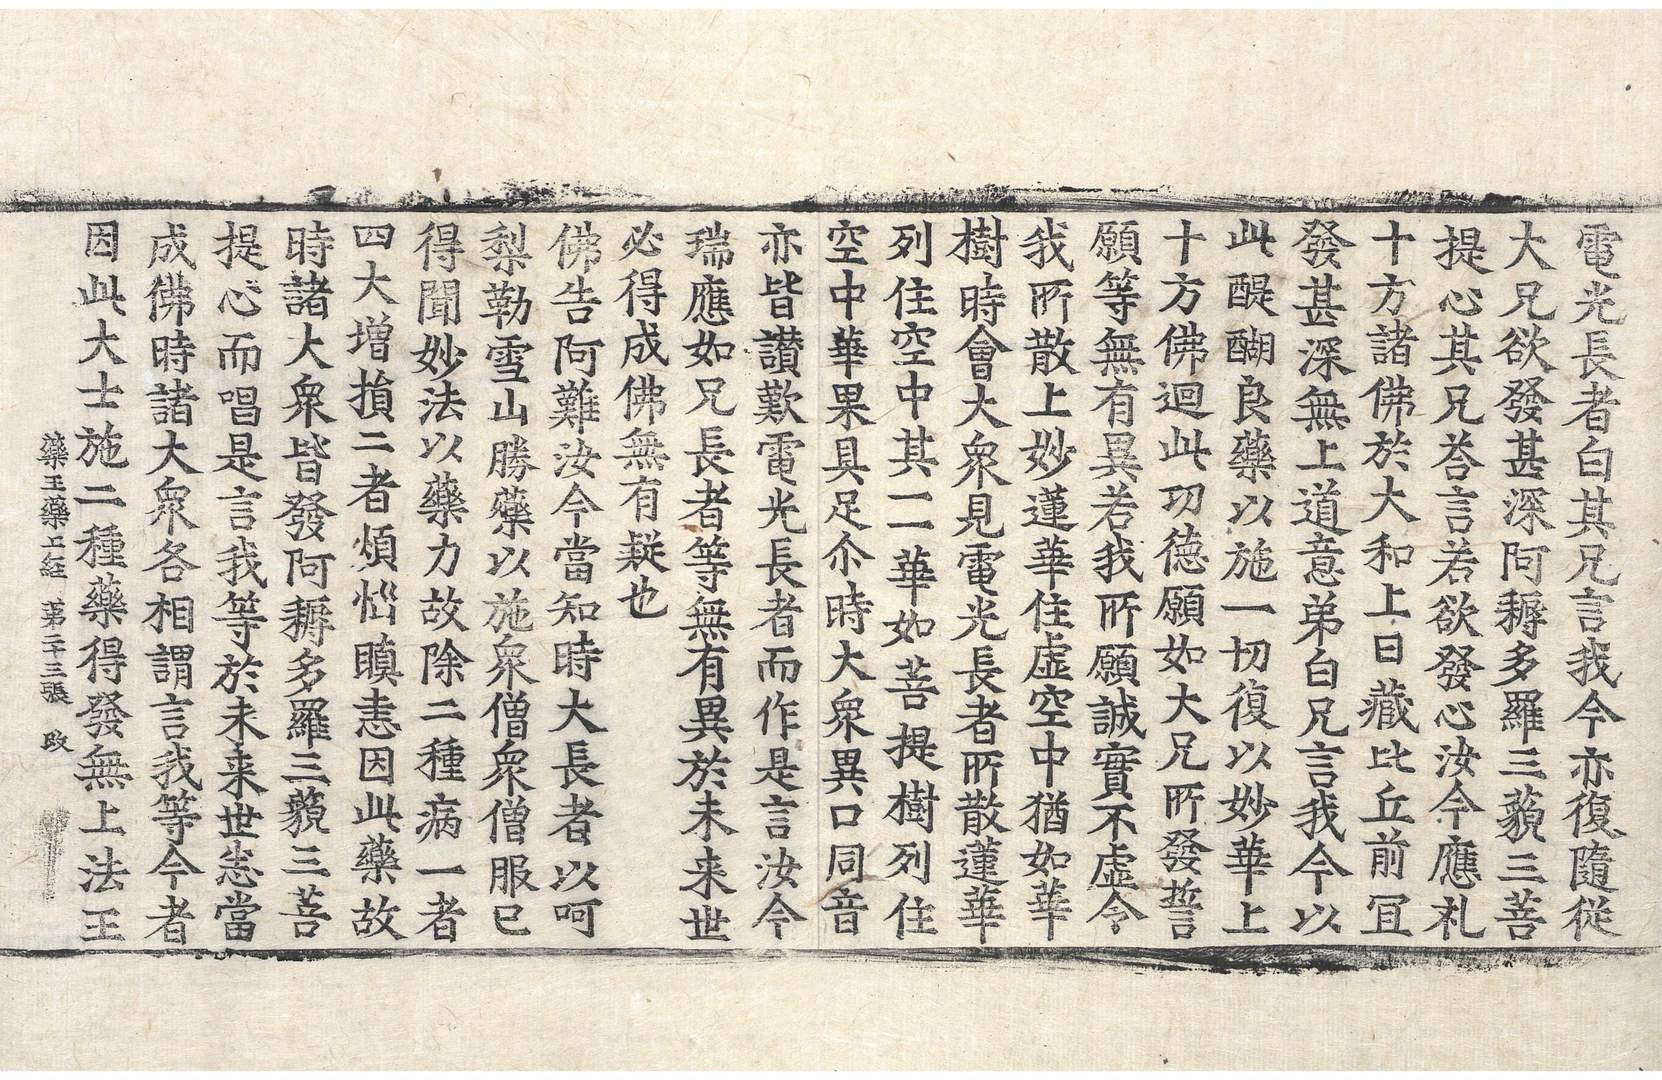 電光長者白其兄言我今亦復隨從
大兄欲發甚深阿耨多羅三藐三菩
提心其兄荅言若欲發心汝今應礼
十方諸佛於大和上日藏比丘前冝
發甚深無上道意弟白兄言我今以
此醍醐良藥以施一切復以妙華上
十方佛迴此功德願如大兄所發誓
願等無有異若我所願誠實不虛令
我所散上妙蓮華住虛空中猶如華
樹時會大衆見電光長者所散蓮華
列住空中其一一華如菩提樹列住
空中華果具足尒時大衆異口同音
亦皆讃歎電光長者而作是言汝今
瑞應如兄長者等無有異於未来世
必得成佛無有疑也
佛告阿難汝今當知時大長者以呵
梨勒雪山勝藥以施衆僧衆僧服已
得聞妙法以藥力故除二種病一者
四大增損二者煩惱瞋恚因此藥故
時諸大衆皆發阿耨多羅三藐三菩
提心而唱是言我等於未来世悉當
成佛時諸大衆各相謂言我等今者
因此大士施二種藥得發無上法王
藥王藥上経 第二十三張 改